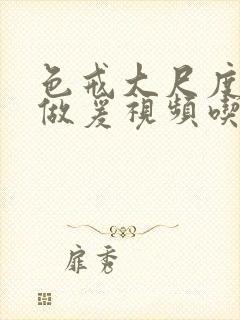 色戒大尺度
做爰視頻喫
扉秀